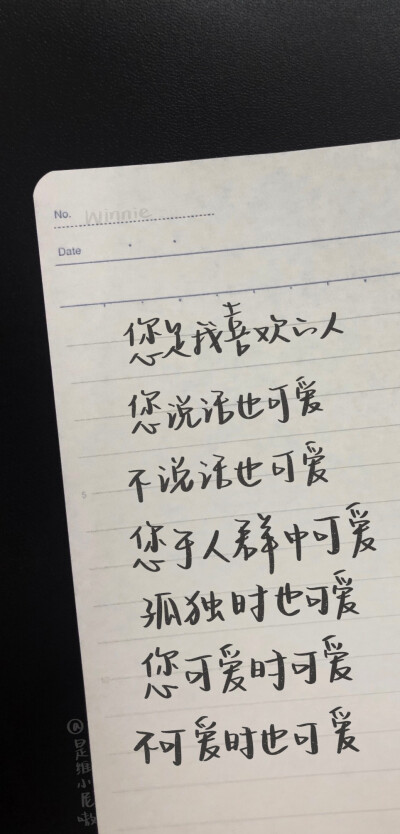 No. Winnie
Date
您是我喜欢的人
您说话也可爱
不说话也可爱
5
您于人群中可爱
孤独时也可爱
您可爱时可爱
10
不可爱时也可爱
是推小尾